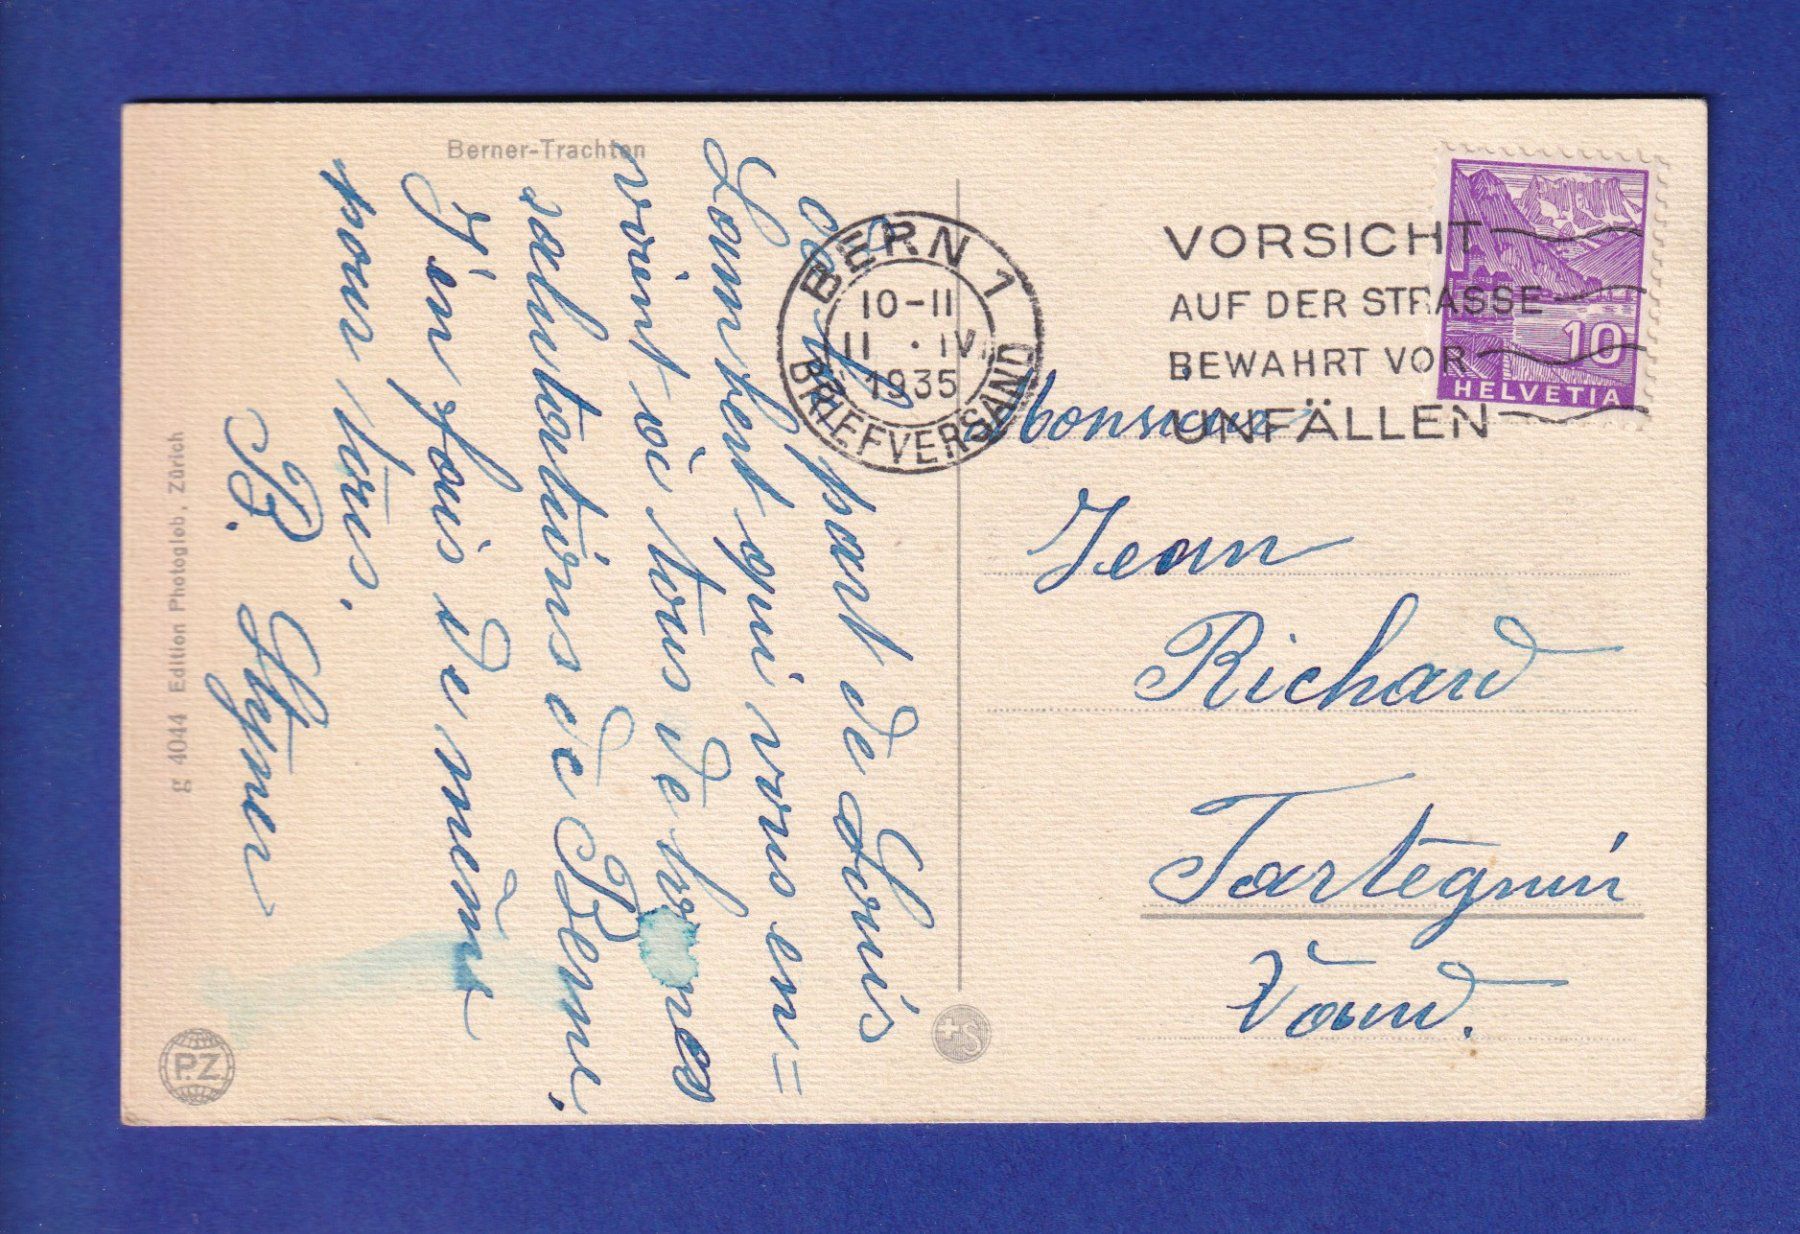 Berner-Trachten
de la part de Louis
Lambert qui vous en=
voient à tous de bonnes
salutations de Berne,
J'en fais de même
pour tous.
B.
g 4044 Edition Photoglob, Zürich
P.Z.
BERN 1
10-11
11.IV.
1935
BRIEFVERSAND
VORSICHT
AUF DER STRASSE
BEWAHRT VOR
UNFÄLLEN
10
HELVETIA
Monsieur
Jean
Richard
Tartegnin
Vaud.
+S